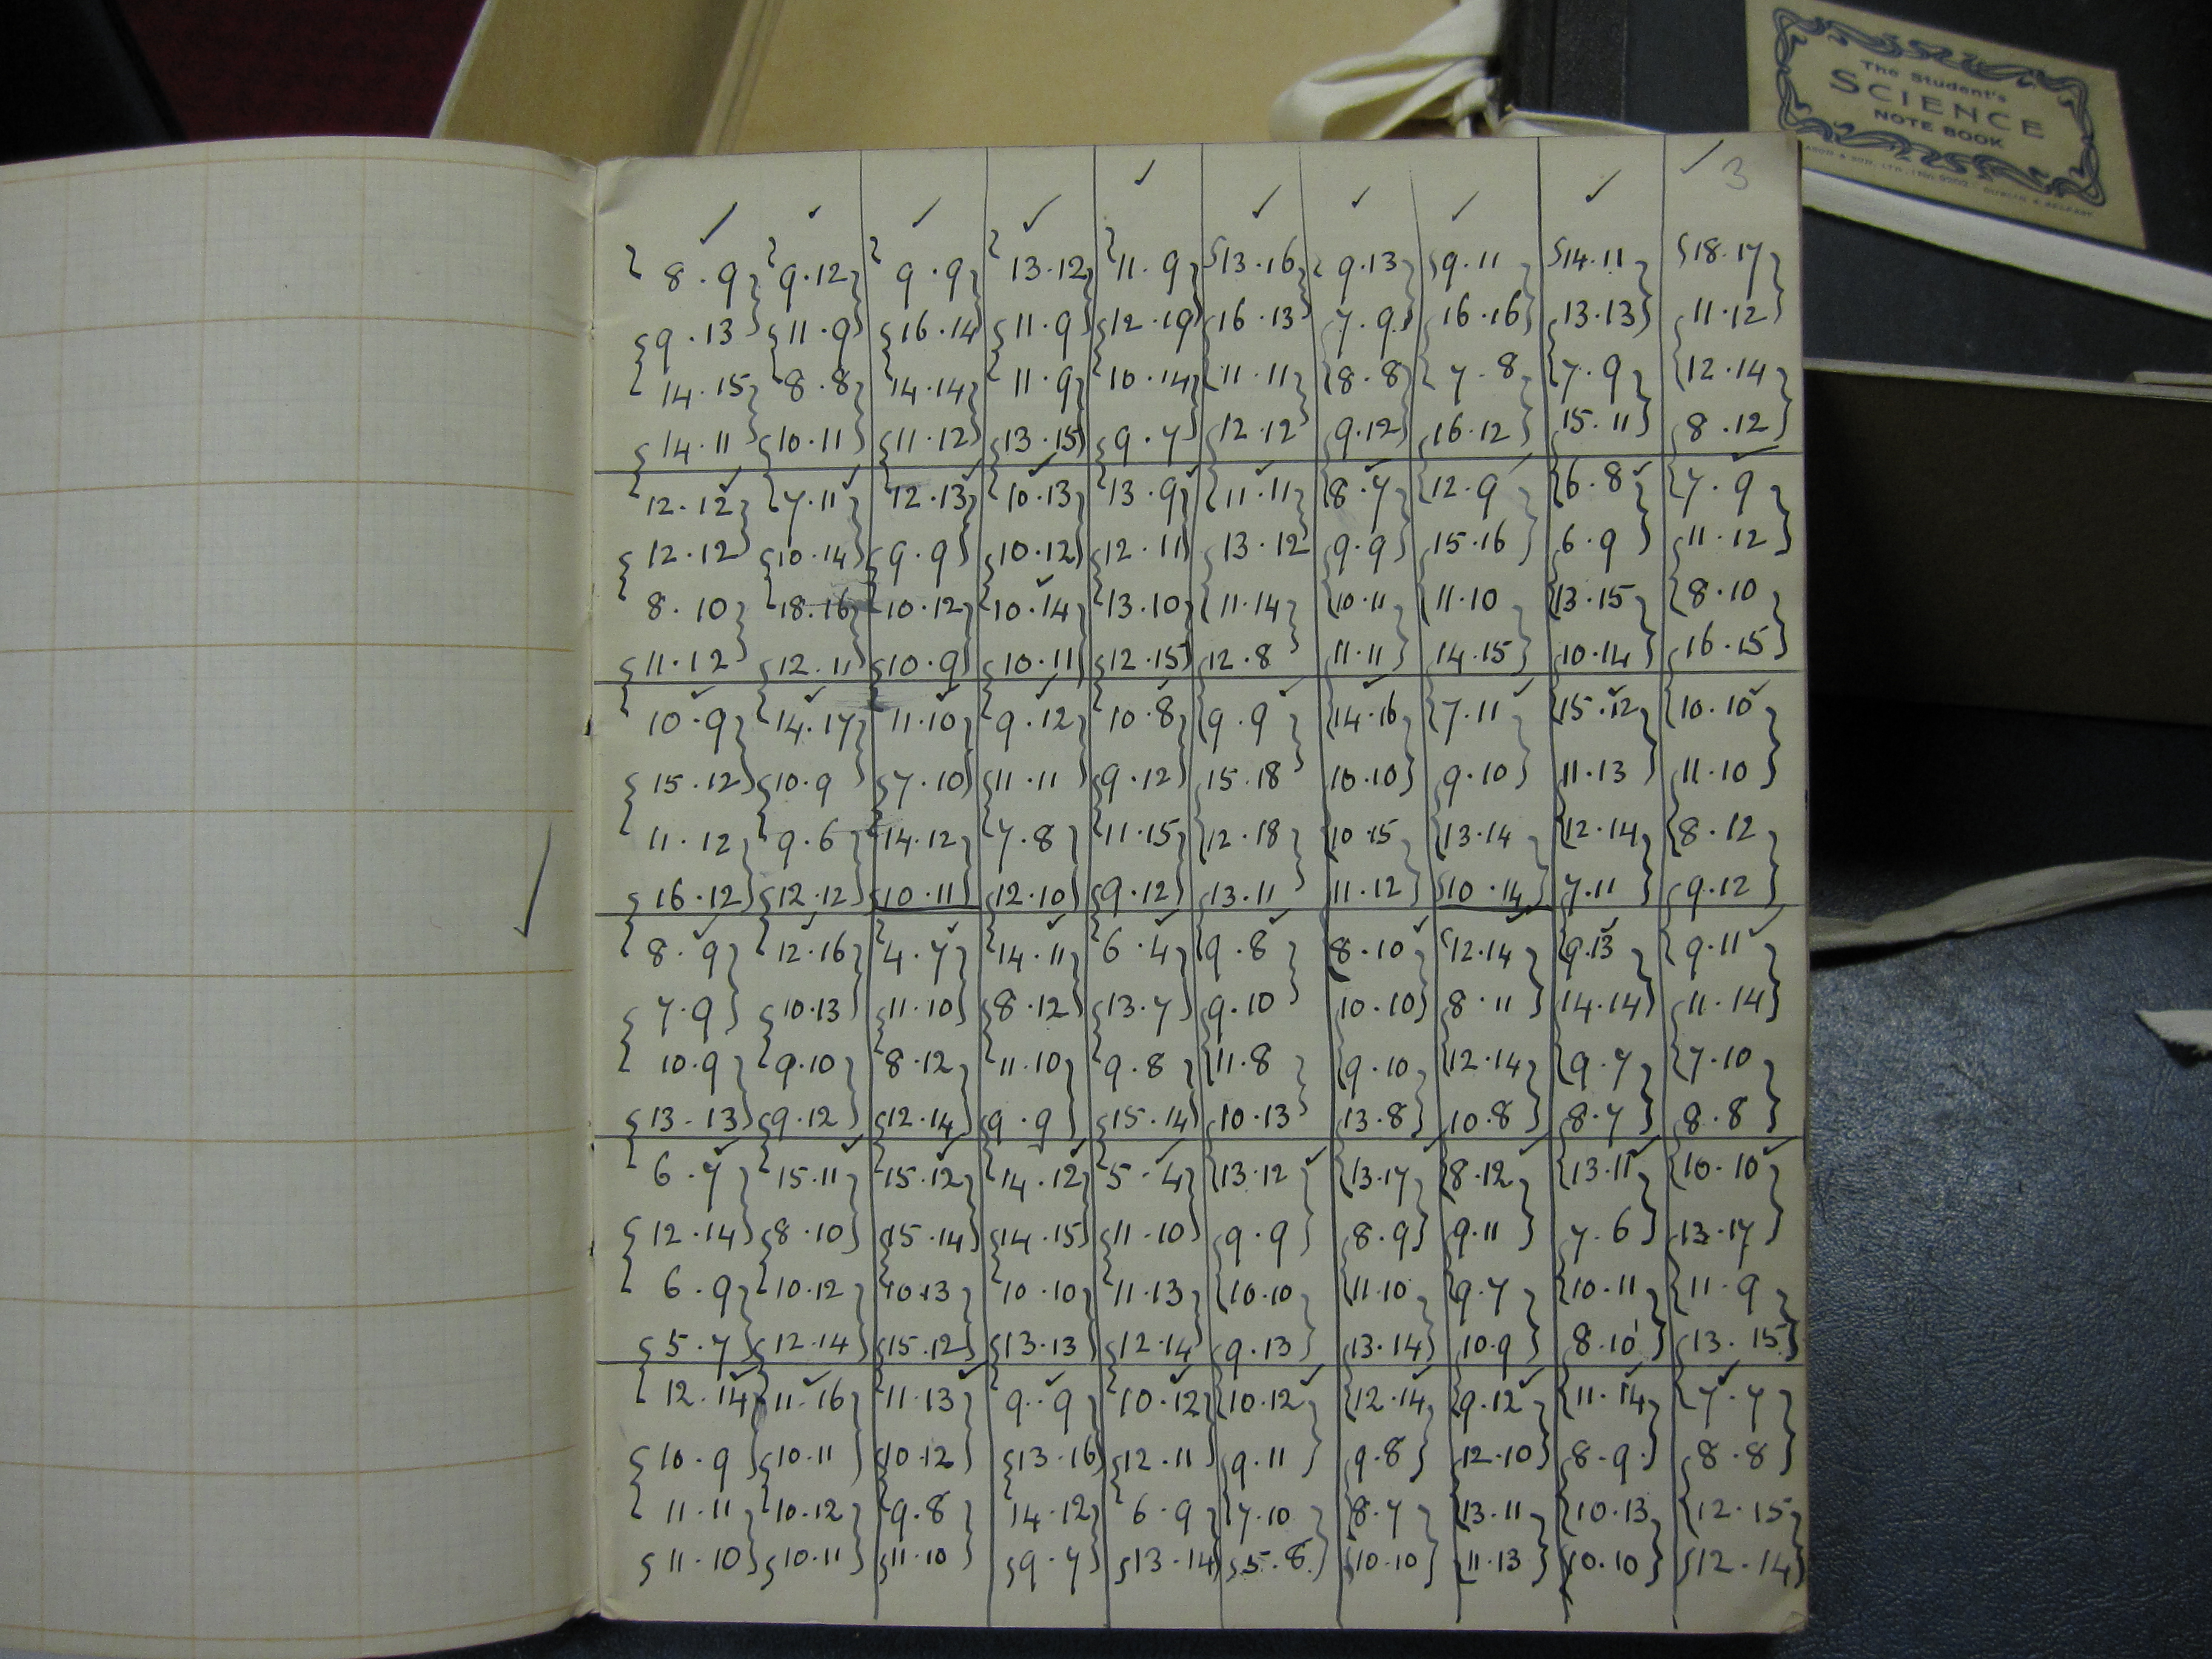 The Student's
SCIENCE
NOTE BOOK
3
8.9 9.12 9.9 13.12 11.9 13.16 9.13 9.11 14.11 18.17
9.13 11.9 16.14 11.9 12.19 16.13 7.9 16.16 13.13 11.12
14.15 8.8 14.14 11.9 10.14 11.11 8.8 7.8 7.9 12.14
14.11 10.11 11.12 13.15 9.7 12.12 9.12 16.12 15.11 8.12
12.12 7.11 12.13 10.13 13.9 11.11 8.7 12.9 6.8 7.9
12.12 10.14 9.9 10.12 12.11 13.12 9.9 15.16 6.9 11.12
8.10 18.16 10.12 10.14 13.10 11.14 10.11 11.10 13.15 8.10
11.12 12.11 10.9 10.11 12.15 12.8 11.11 14.15 10.14 16.15
10.9 14.17 11.10 9.12 10.8 9.9 14.16 7.11 15.12 10.10
15.12 10.9 7.10 11.11 9.12 15.18 10.10 9.10 11.13 11.10
11.12 9.6 14.12 7.8 11.15 12.18 10.15 13.14 12.14 8.12
16.12 12.12 10.11 12.10 9.12 13.11 11.12 10.14 7.11 9.12
8.9 12.16 4.7 14.11 6.4 9.8 8.10 12.14 9.13 9.11
7.9 10.13 11.10 8.12 13.7 9.10 10.10 8.11 14.14 11.14
10.9 9.10 8.12 11.10 9.8 11.8 9.10 12.14 9.7 7.10
13.13 9.12 12.14 9.9 15.14 10.13 13.8 10.8 8.7 8.8
6.7 15.11 15.12 14.12 5.4 13.12 13.17 8.12 13.11 10.10
12.14 8.10 15.14 14.15 11.10 9.9 8.9 9.11 7.6 13.17
6.9 10.12 10.13 10.10 11.13 10.10 11.10 9.7 10.11 11.9
5.7 12.14 15.12 13.13 12.14 9.13 13.14 10.9 8.10 13.15
12.14 11.16 11.13 9.9 10.12 10.12 12.14 9.12 11.14 7.7
10.9 10.11 10.12 13.16 12.11 9.11 9.8 12.10 8.9 8.8
11.11 10.12 9.8 14.12 6.9 7.10 8.7 13.11 10.13 12.15
11.10 10.11 11.10 9.7 13.14 5.8 10.10 11.13 10.10 12.14